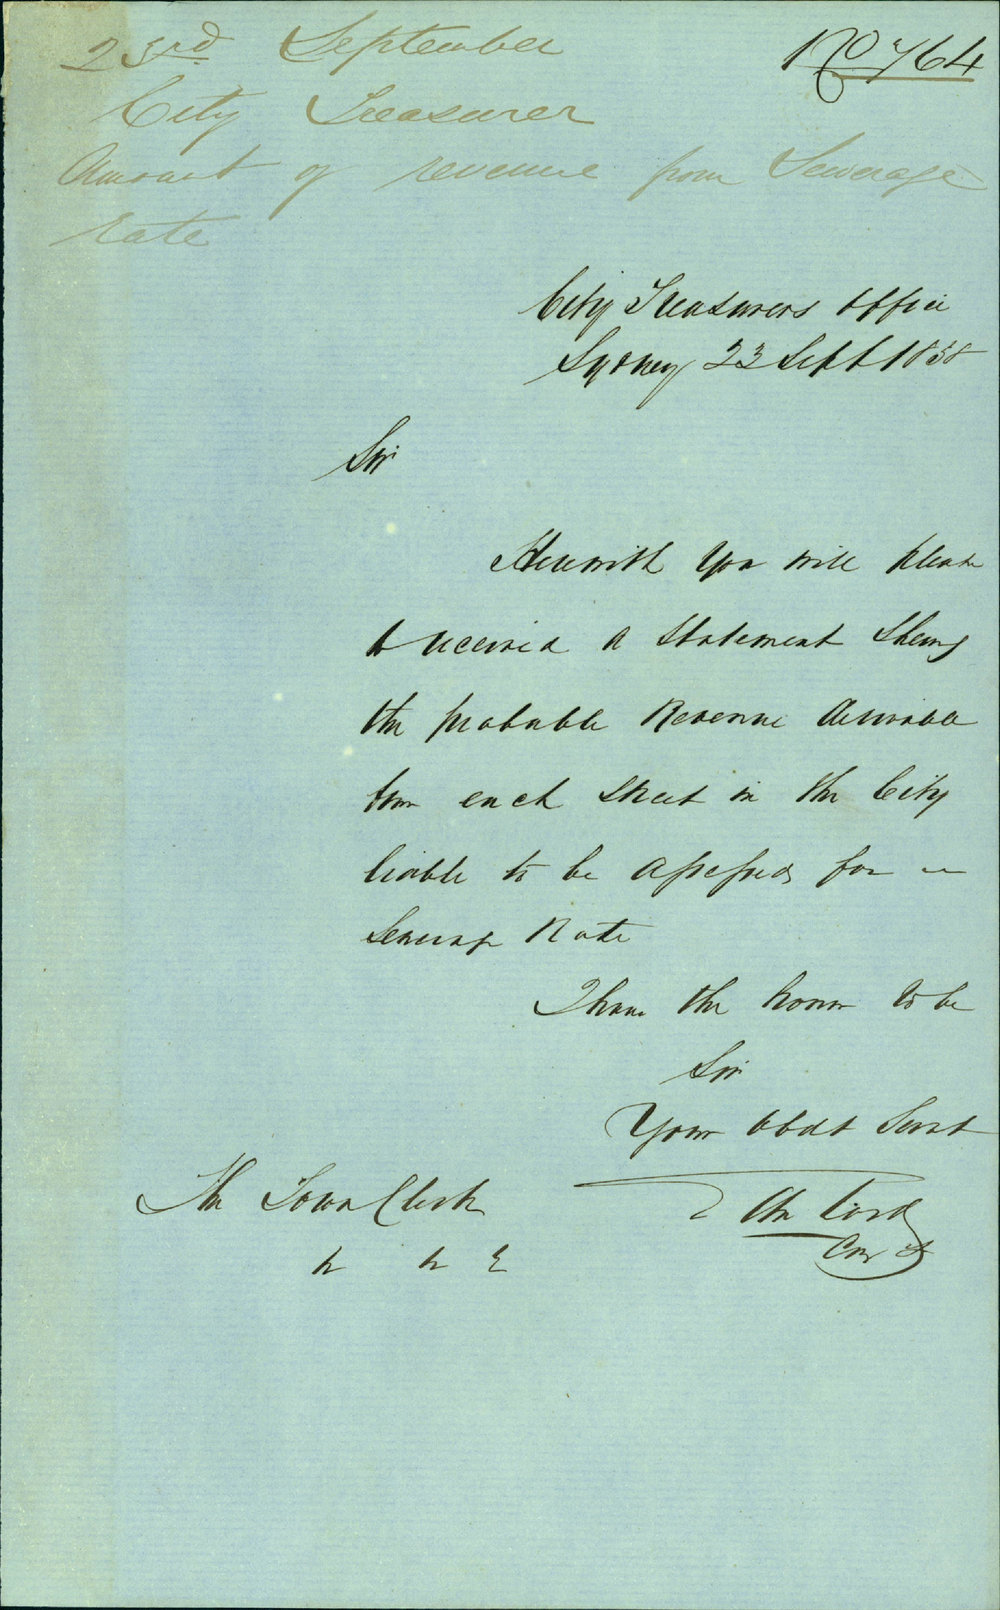 23rd September
No 764
City Treasurer
Amount of revenue from Sewerage
Rate
City Treasurers Office
Sydney 23 Sept 1858
Sir
Herewith you will please
to receive a Statement Shewing
the probable Revenue derivable
from each Street in the City
liable to be assessed for a
Sewerage Rate
I have the honor to be
Sir
Your Obdt Servt
The Town Clerk